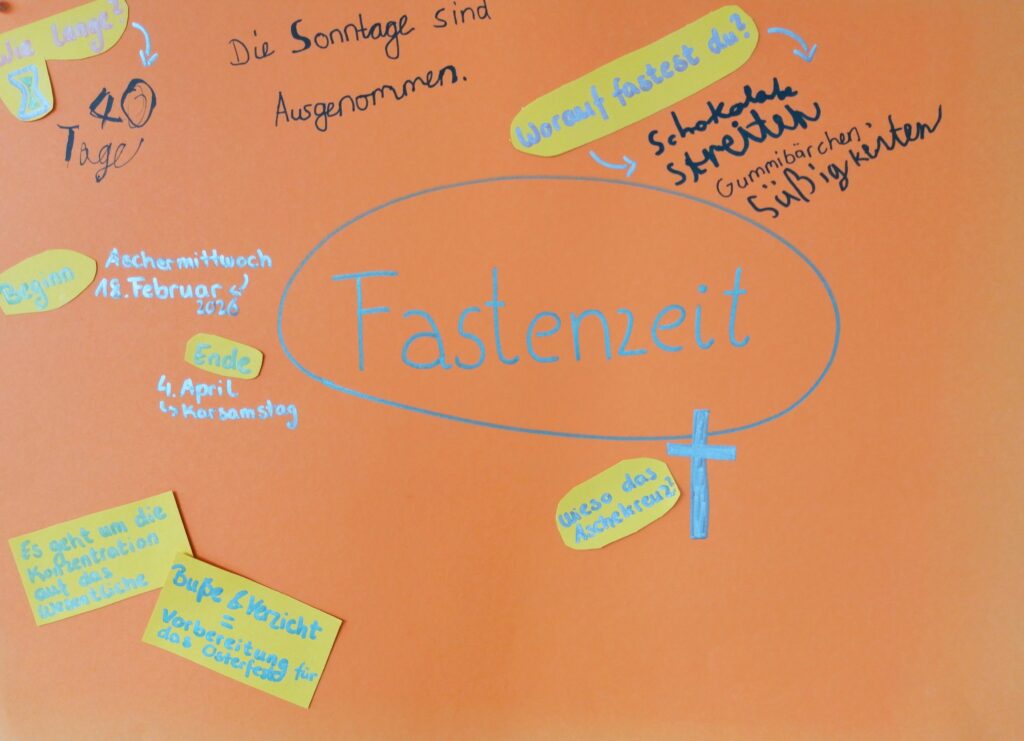 Wie lange?
40
Tage
Die Sonntage sind
Ausgenommen.
Worauf fastest du?
Schokolade
streiten
Gummibärchen
Süßigkeiten
Beginn
Aschermittwoch
18. Februar
2026
Ende
4. April
↳ Karsamstag
Fastenzeit
Wieso das
Aschekreuz?
Es geht um die
Konzentration
auf das
Wesentliche
Buße & Verzicht
=
Vorbereitung für
das Osterfest